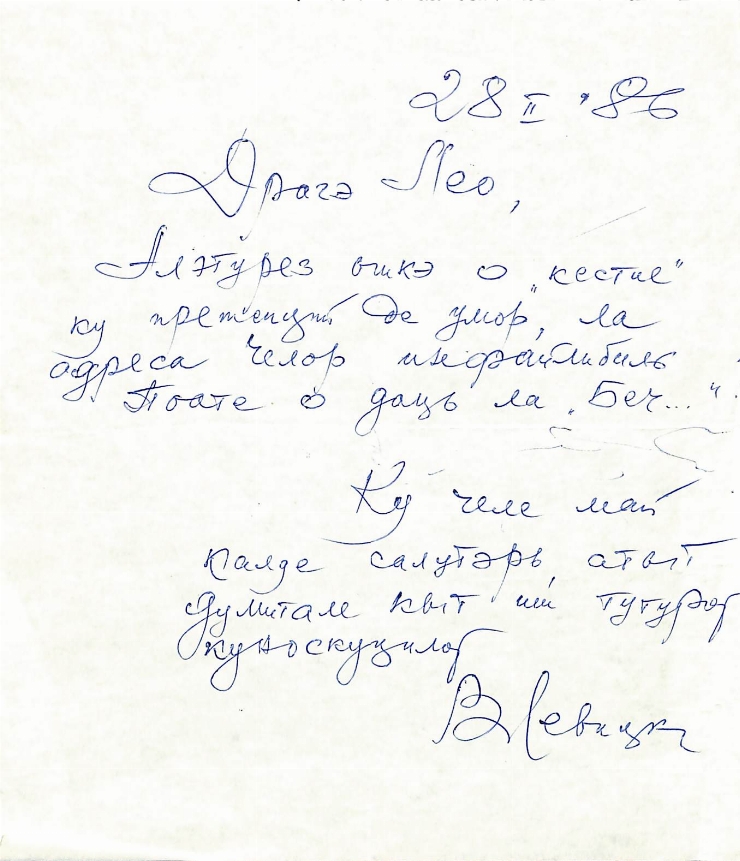 28 II '86
Драгэ Лео,
Алэтурез ышкэ о „кестие"
ку претенций де умор, ла
адреса челор инфайлибиль
Поате о даць ла „Беч..."
Ку челе май
калде салутэрь, атыт
думитале кыт ши тутурор
куноскуцилор
В Левицки